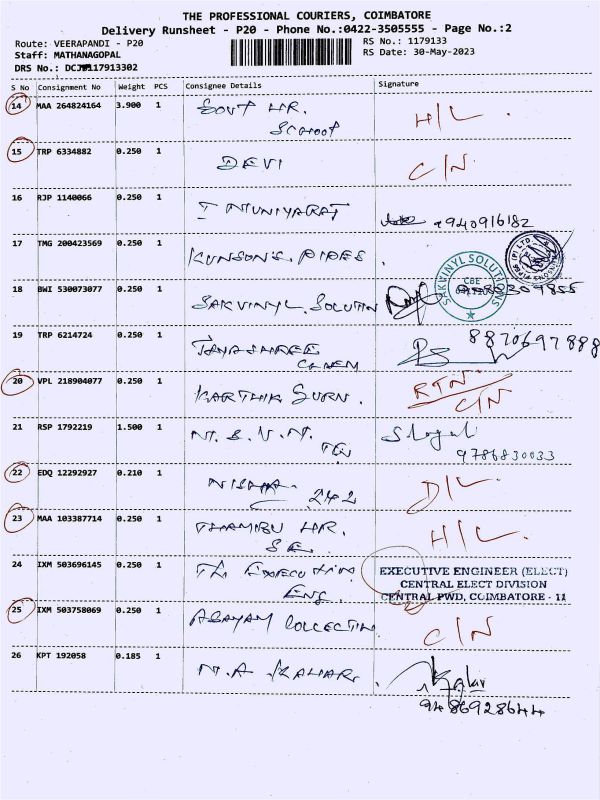 THE PROFESSIONAL COURIERS, COIMBATORE
Delivery Runsheet - P20 - Phone No.:0422-3505555 - Page No.:2
Route: VEERAPANDI - P20
RS No.: 1179133
Staff: MATHANAGOPAL
RS Date: 30-May-2023
DRS No.: DCJ 117913302
S No Consignment No Weight PCS Consignee Details Signature
14 MAA 264824164 3.900 1 GOVT HR. H/L.
SCHOOL
15 TRP 6334882 0.250 1 DEVI C/N.
16 RJP 1140066 0.250 1 I MUNIYARAT
9940916182
17 TMG 200423569 0.250 1 KUNSONS PIPES.
18 BWI 530073077 0.250 1 SAKVINYL SOLUTIN
SAKVINYL SOLUTIONS
CBE
19 TRP 6214724 0.250 1 JAYASHREE 8870697888
CHEM
20 VPL 218904077 0.250 1 KARTHIK SURN. RTN.
C/N
21 RSP 1792219 1.500 1 N. S. N. M.
9786830033
22 EDQ 12292927 0.210 1 NISHA. D/L.
242
23 MAA 103387714 0.250 1 THAMIBU HR. H/L.
SE.
24 IXM 503696145 0.250 1 THE EXECUTIN EXECUTIVE ENGINEER (ELECT)
ENG. CENTRAL ELECT DIVISION
CENTRAL PWD, COIMBATORE - 11
25 IXM 503758069 0.250 1 ABAYAM COLLECTIN C/N
26 KPT 192058 0.185 1 N. A KAHAR.
9486928644